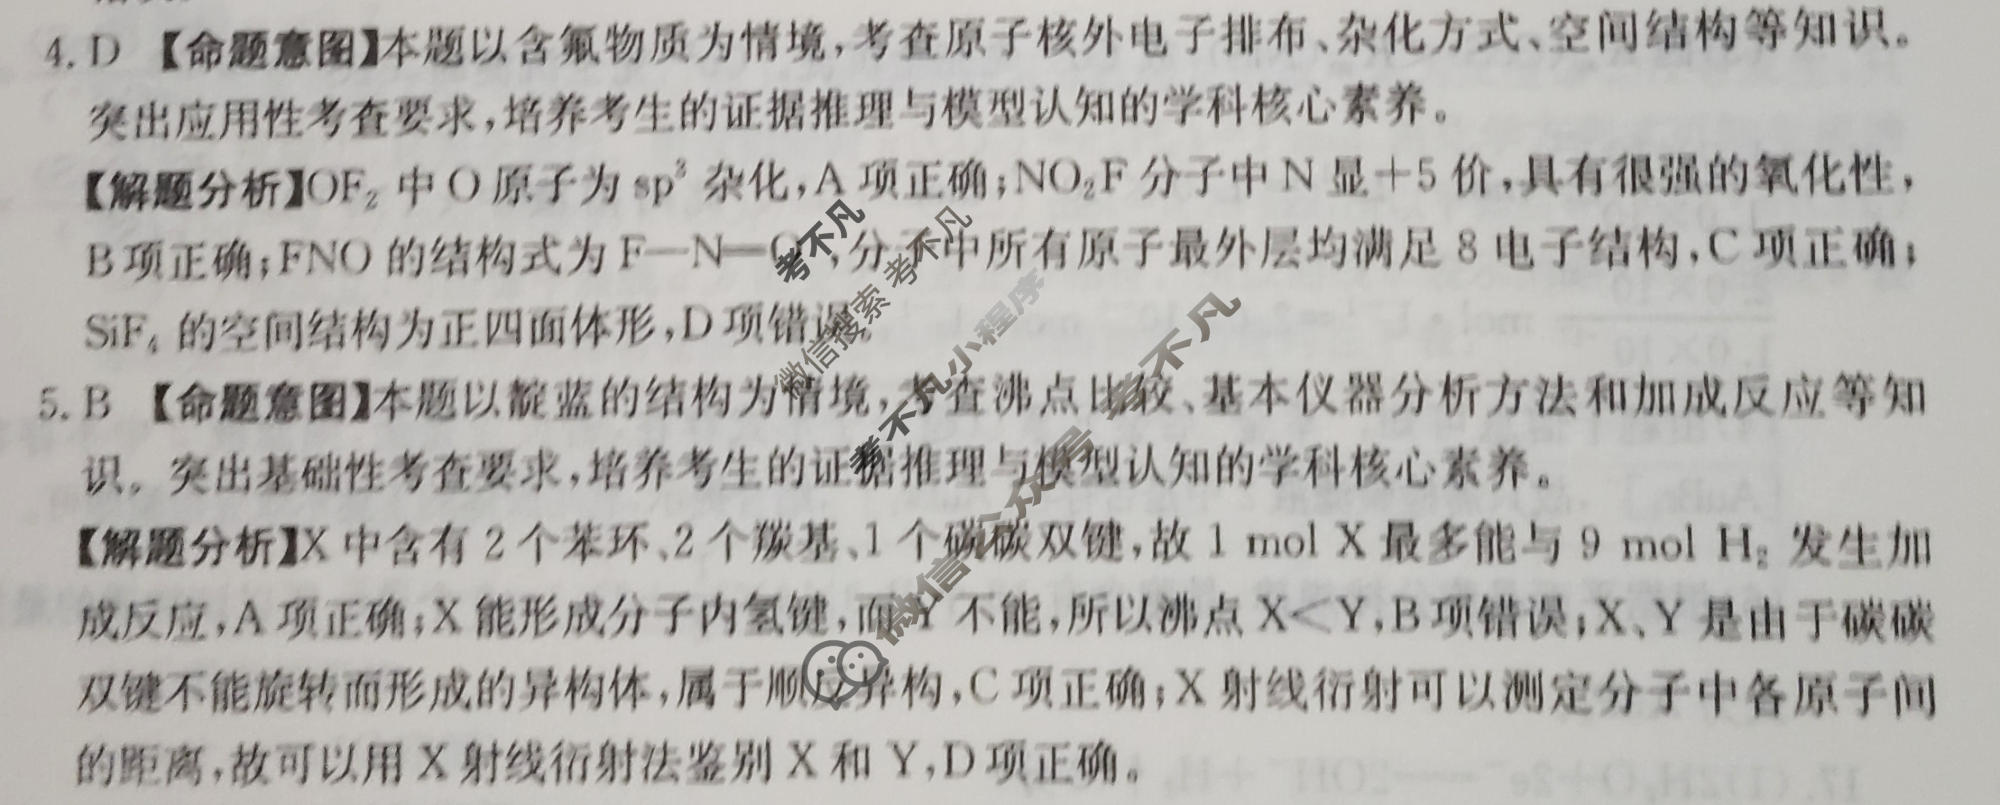 4. D 【命题意图】本题以含氟物质为情境,考查原子核外电子排布、杂化方式、空间结构等知识。
突出应用性考查要求,培养考生的证据推理与模型认知的学科核心素养。
【解题分析】OF₂ 中 O 原子为 sp³ 杂化,A 项正确;NO₂F 分子中 N 显+5 价,具有很强的氧化性,
B 项正确;FNO 的结构式为 F—N═O,分子中所有原子最外层均满足 8 电子结构,C 项正确;
SiF₄ 的空间结构为正四面体形,D 项错误。
5. B 【命题意图】本题以靛蓝的结构为情境,考查沸点比较、基本仪器分析方法和加成反应等知
识。突出基础性考查要求,培养考生的证据推理与模型认知的学科核心素养。
【解题分析】X 中含有 2 个苯环、2 个羰基、1 个碳碳双键,故 1 mol X 最多能与 9 mol H₂ 发生加
成反应,A 项正确;X 能形成分子内氢键,而 Y 不能,所以沸点 X<Y,B 项错误;X、Y 是由于碳碳
双键不能旋转而形成的异构体,属于顺反异构,C 项正确;X 射线衍射可以测定分子中各原子间
的距离,故可以用 X 射线衍射法鉴别 X 和 Y,D 项正确。
考不凡
微信搜索 考不凡
考不凡小程序
微信公众号 考不凡